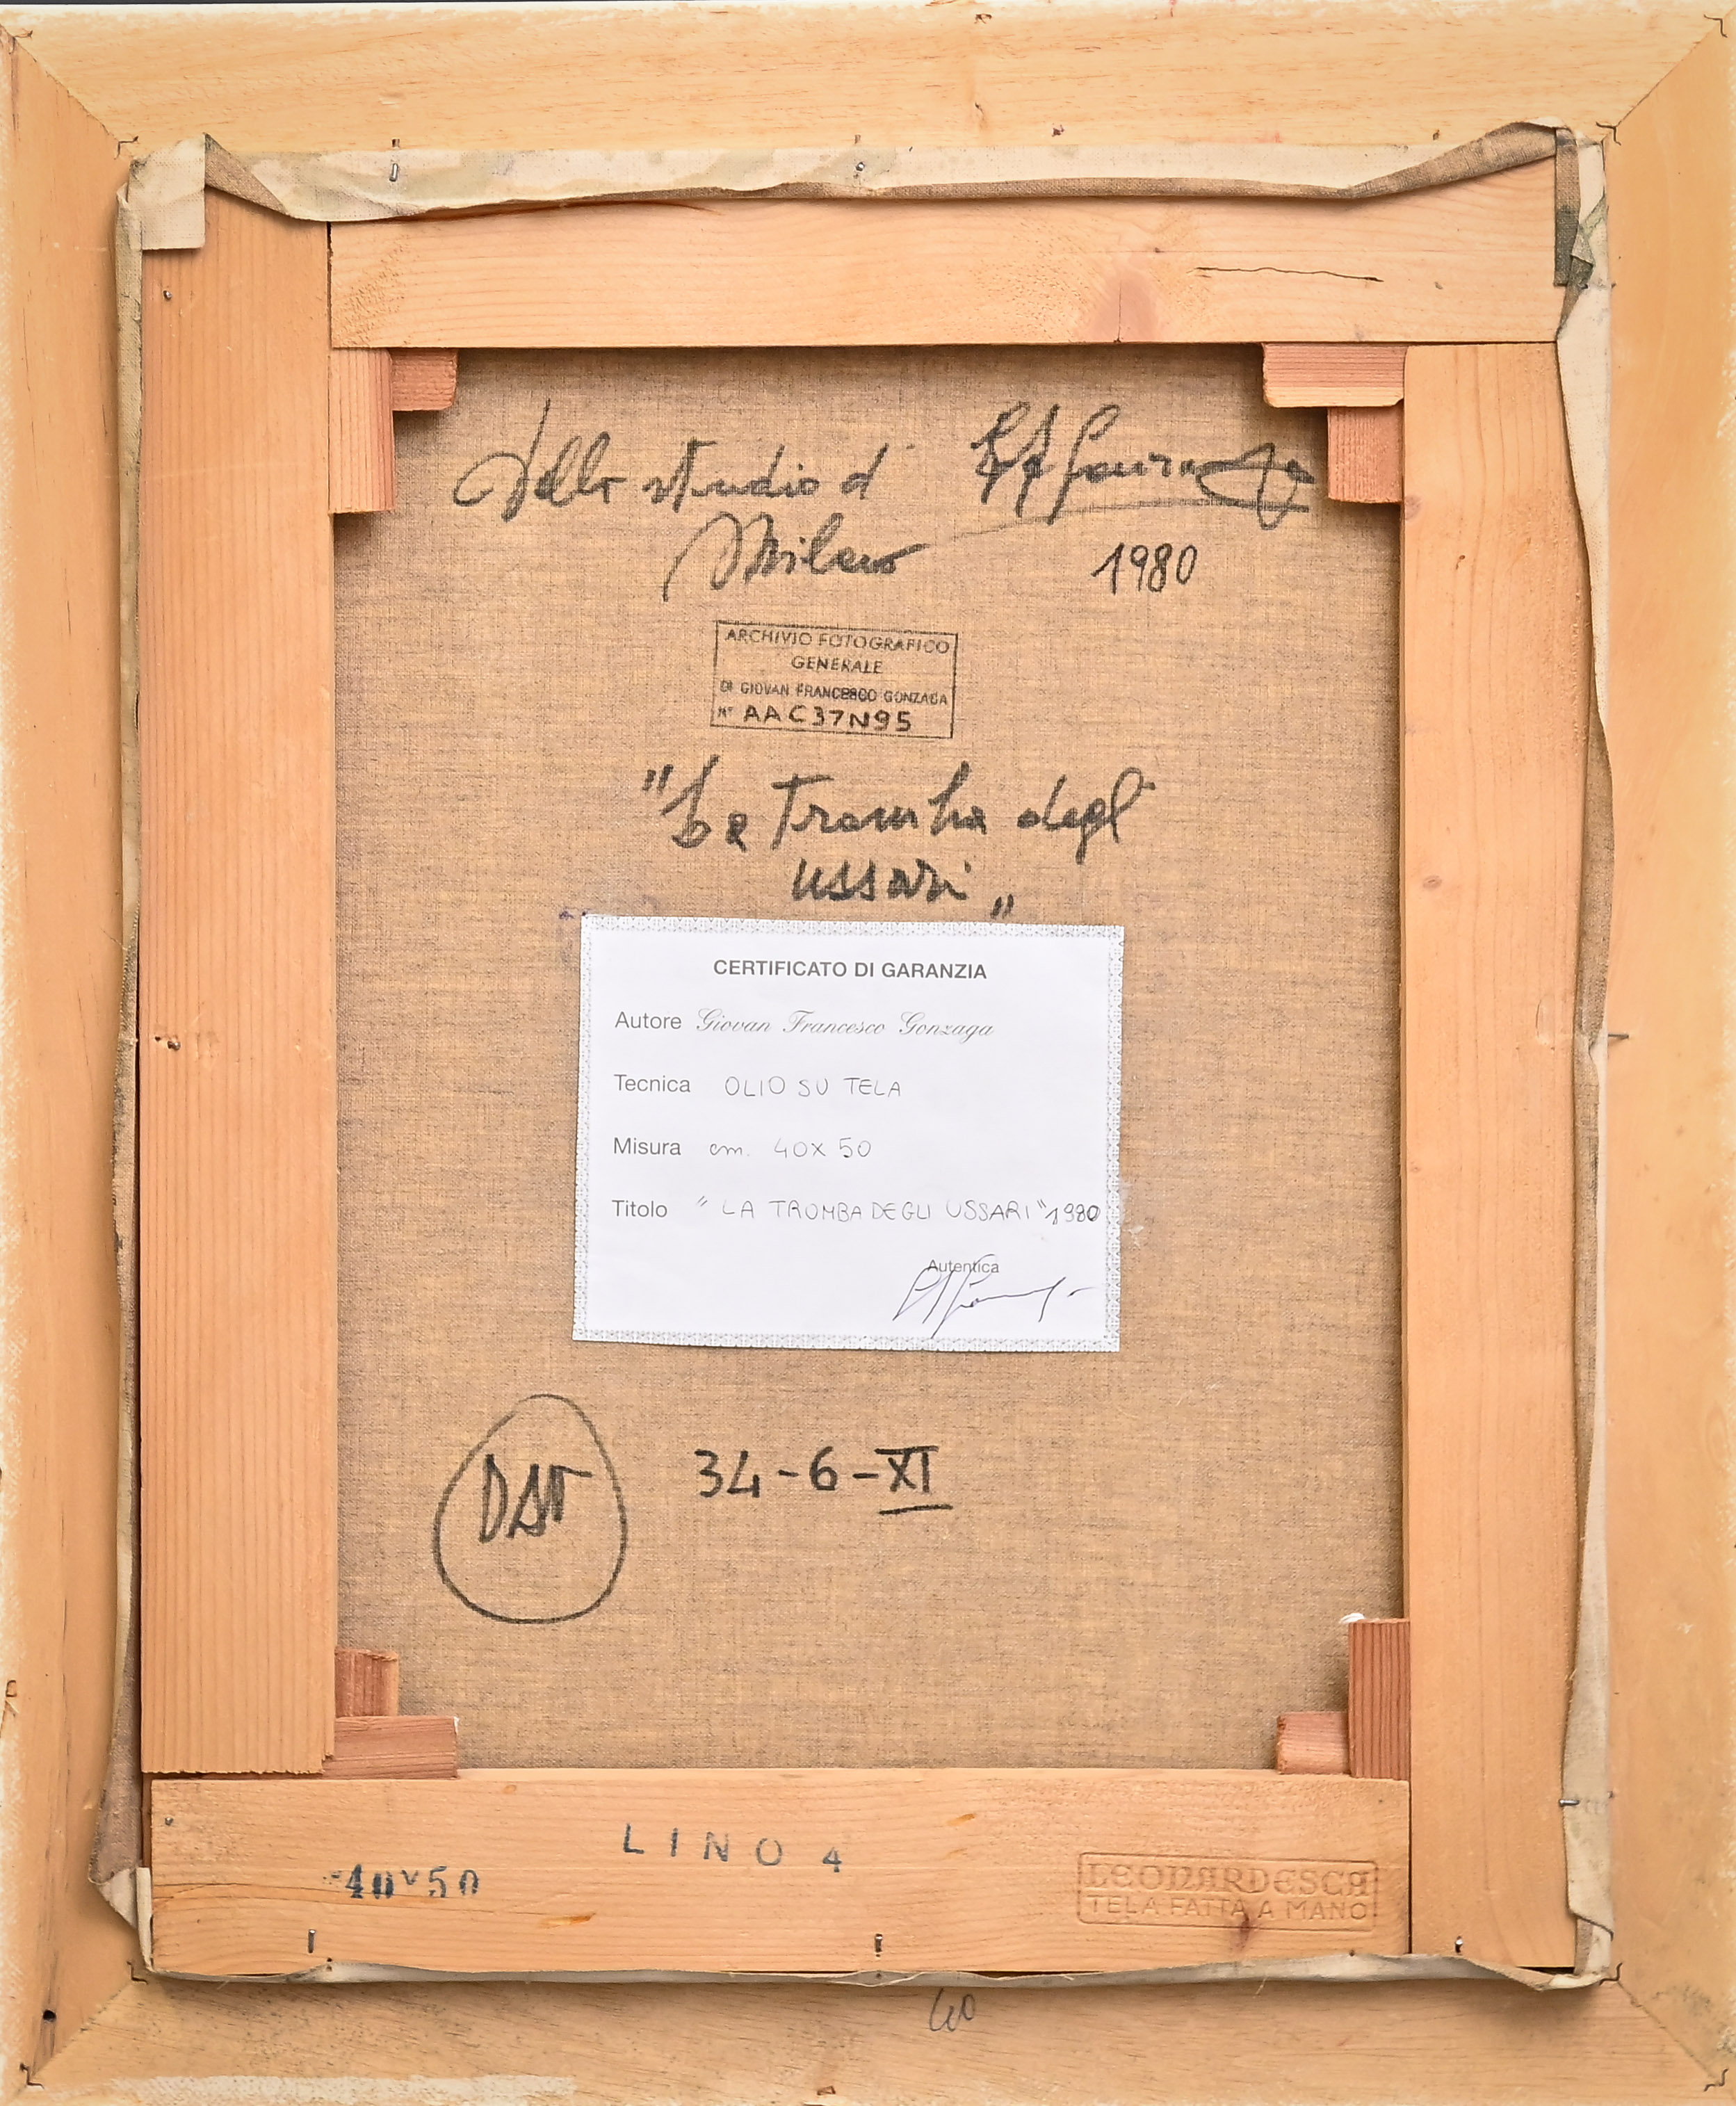 Dallo studio di GFGonzaga
Milano 1980
ARCHIVIO FOTOGRAFICO
GENERALE
DI GIOVAN FRANCESCO GONZAGA
N° AAC37N95
"La Tromba degli
ussari"
CERTIFICATO DI GARANZIA
Autore Giovan Francesco Gonzaga
Tecnica OLIO SU TELA
Misura cm. 40x50
Titolo "LA TROMBA DEGLI USSARI" 1980
Autentica
34-6-XI
LINO 4
40x50
LEONARDESCA
TELA FATTA A MANO
40